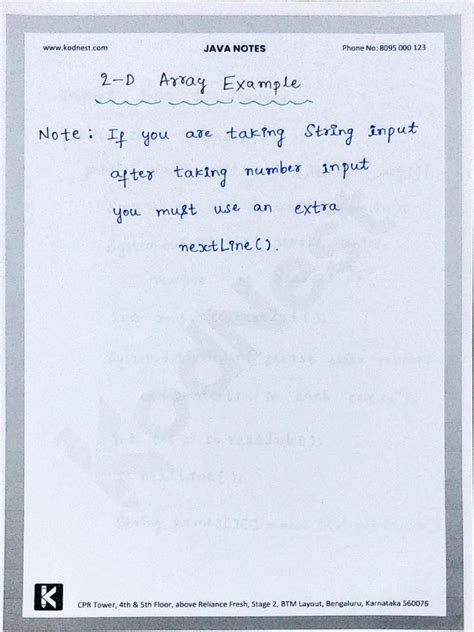 www.kodnest.com JAVA NOTES Phone No: 8095 000 123
2-D Array Example
Note: If you are taking String input
after taking number input
you must use an extra
nextLine().
Kodnest
K
CPR Tower, 4th & 5th Floor, above Reliance Fresh, Stage 2, BTM Layout, Bengaluru, Karnataka 560076